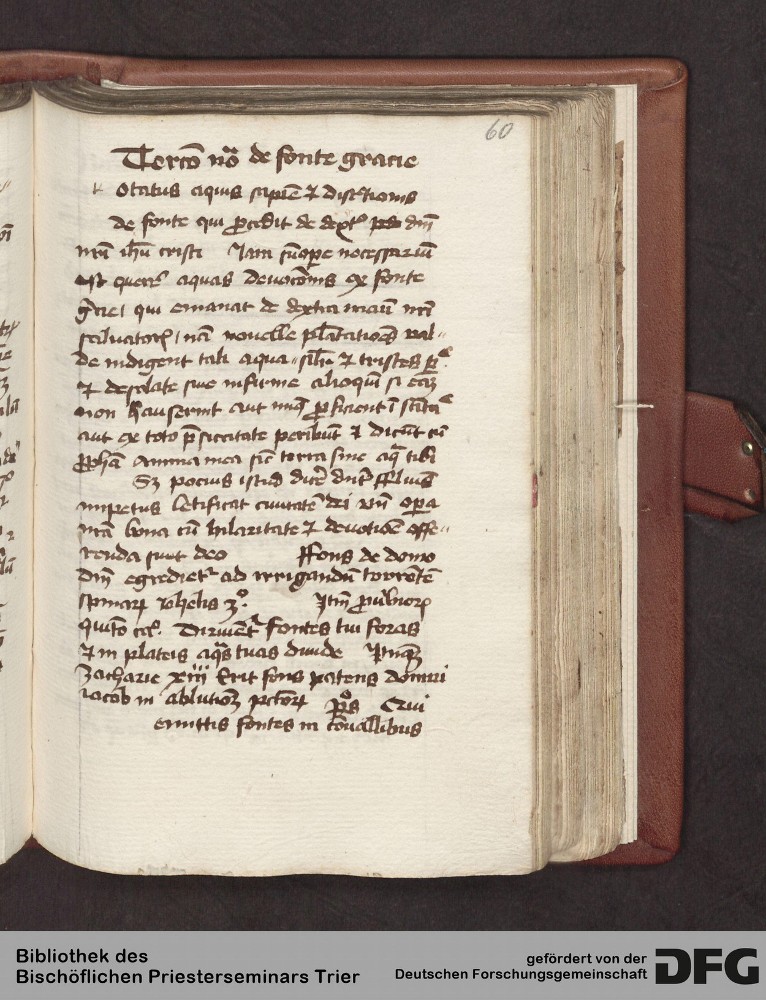 60
Tercō nō de fonte gracie
otatus aquis sapiē & discretionis
de fonte qui procedit de dextro dnī
nrī ihū cristi Iam sūope necessariū
est querere aquas devocionis ex fonte
gracie qui emanat de dextra manu nrī
salvatoris nā novelle plātationes val-
de indigent tali aqua silr & tristes
& desolate sive infirme alioquin si eam
non hauserint aut nūq proficient
aut ex toto p siccitate peribunt & dicūt cū
propheta Anima mea sic terra sine aqua tibi
Sz pocius istud dnr ffluvius
impetus letificat civitatē dei opera
nrā bona cū hilaritate & devotione offe-
renda sunt deo ffons de domo
dnī egredietr ad irrigandū torrentē
spinarum iohelis 3o. Itm proverbiorum
quito ca. Diriventr fontes tui foras
& in plateis aqs tuas divide
Zacharie xiii Erit fons patens domui
iacob in ablutionem pctorum ps Qui
emittis fontes in convallibus
Bibliothek des
Bischöflichen Priesterseminars Trier
gefördert von der
Deutschen Forschungsgemeinschaft
DFG